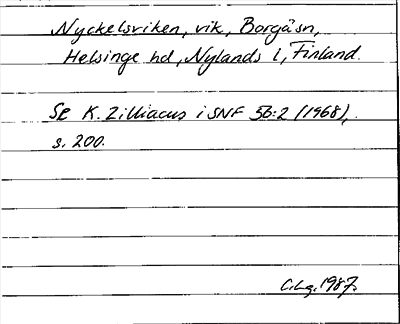 Nyckelsviken, vik, Borgå sn,
Helsinge hd, Nylands l, Finland.
Se K. Zilliacus i SNF 56:2 (1968),
s. 200.
C.Lg. 1987.